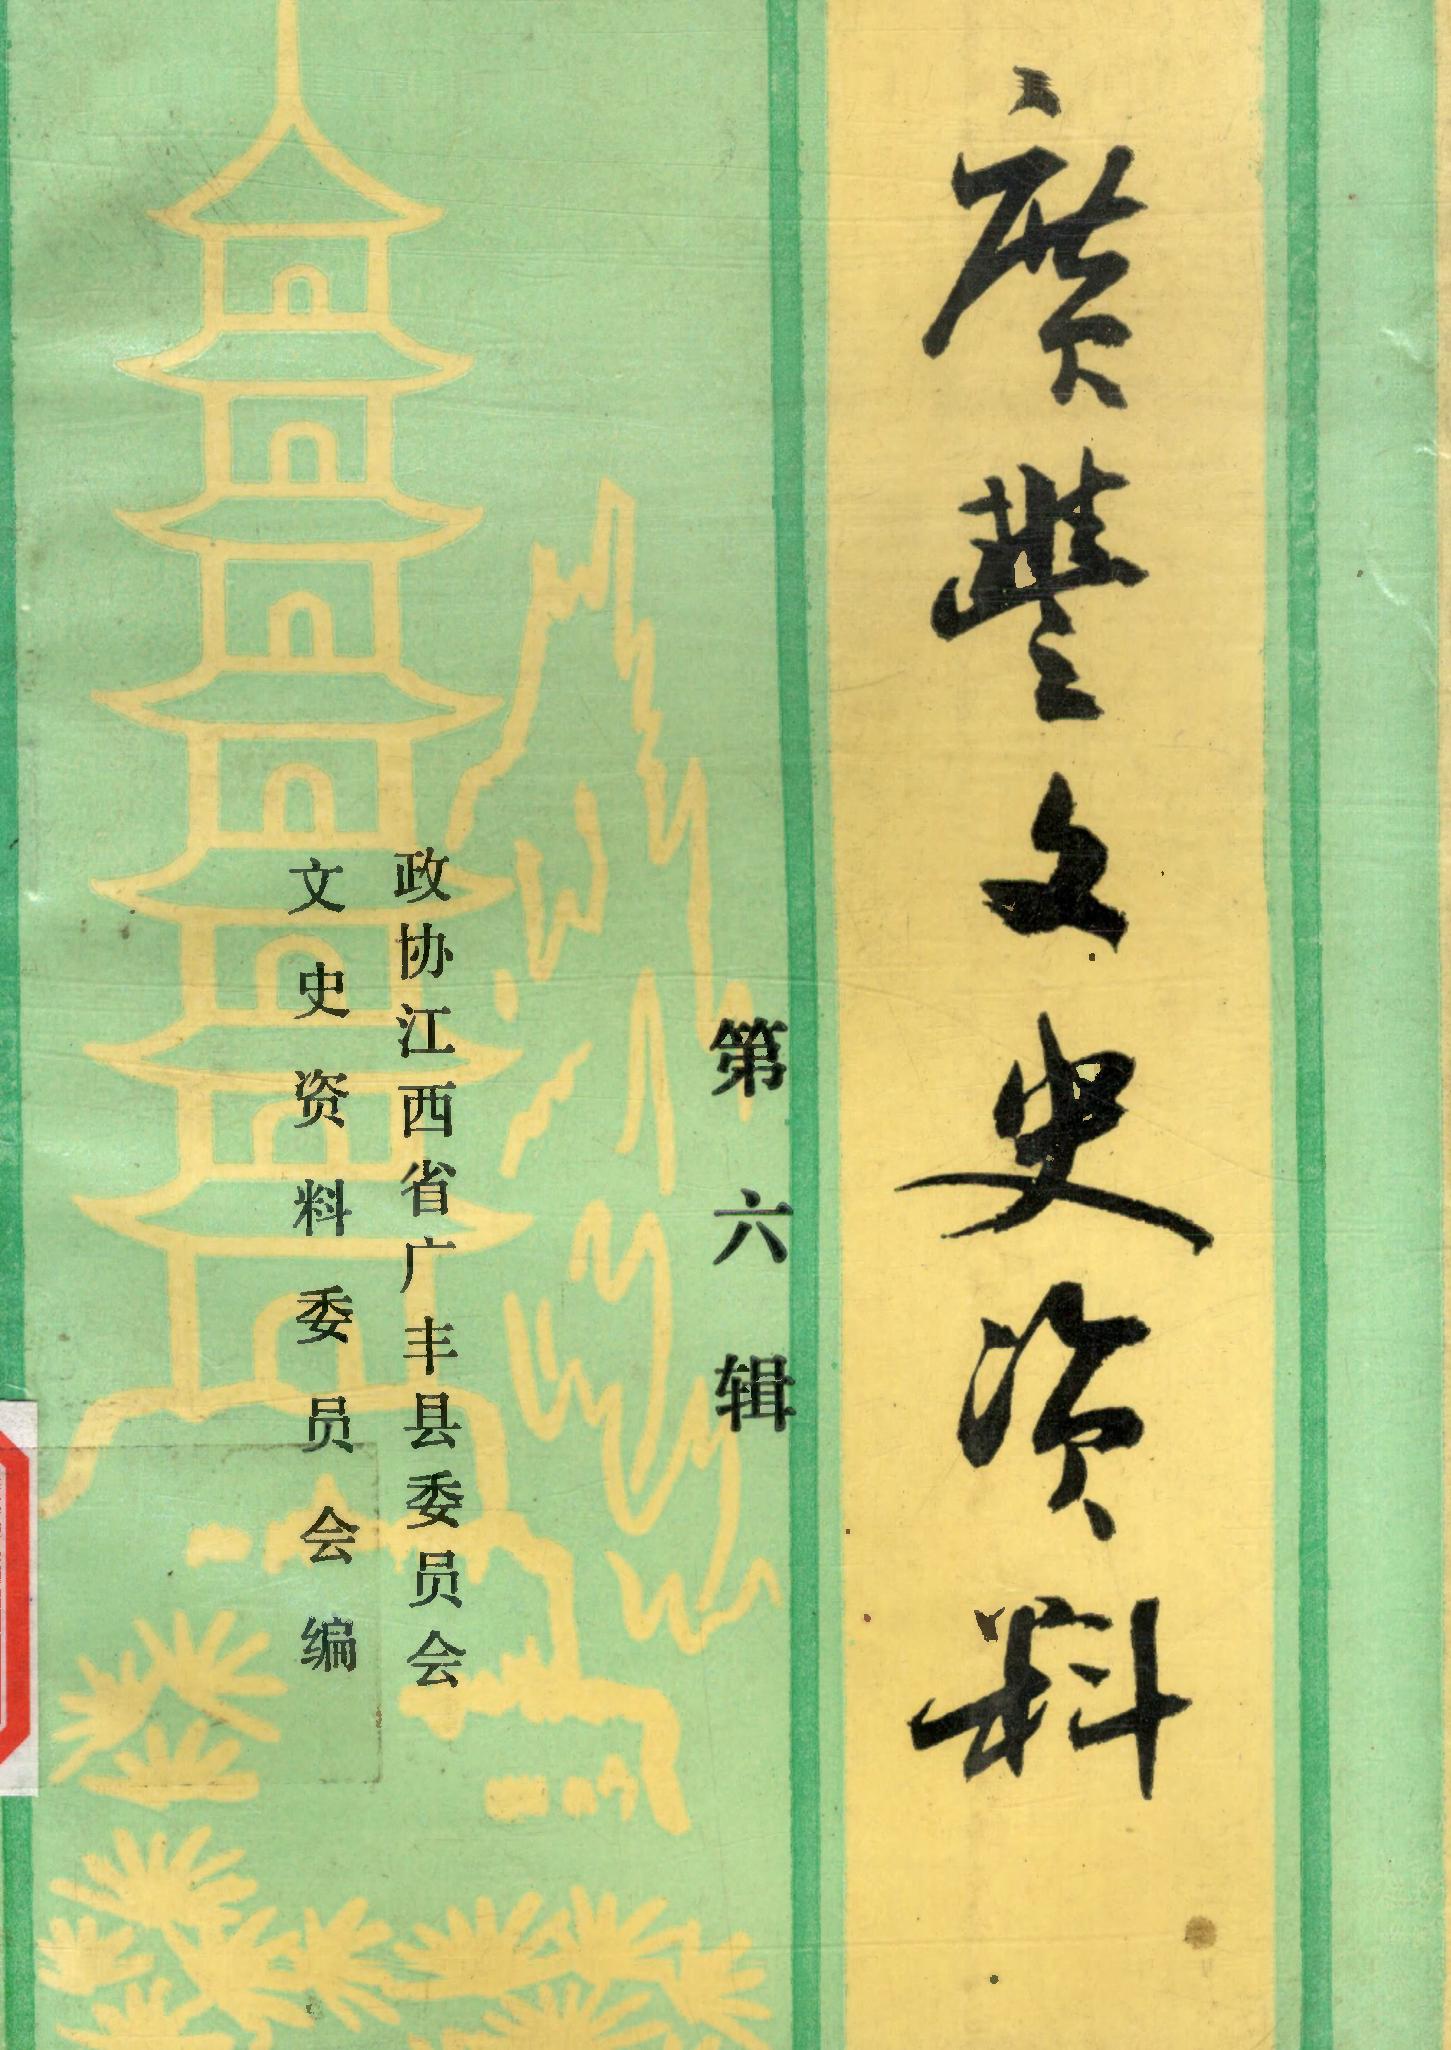 廣豐文史资料
第六辑
政协江西省广丰县委员会
文史资料委员会编